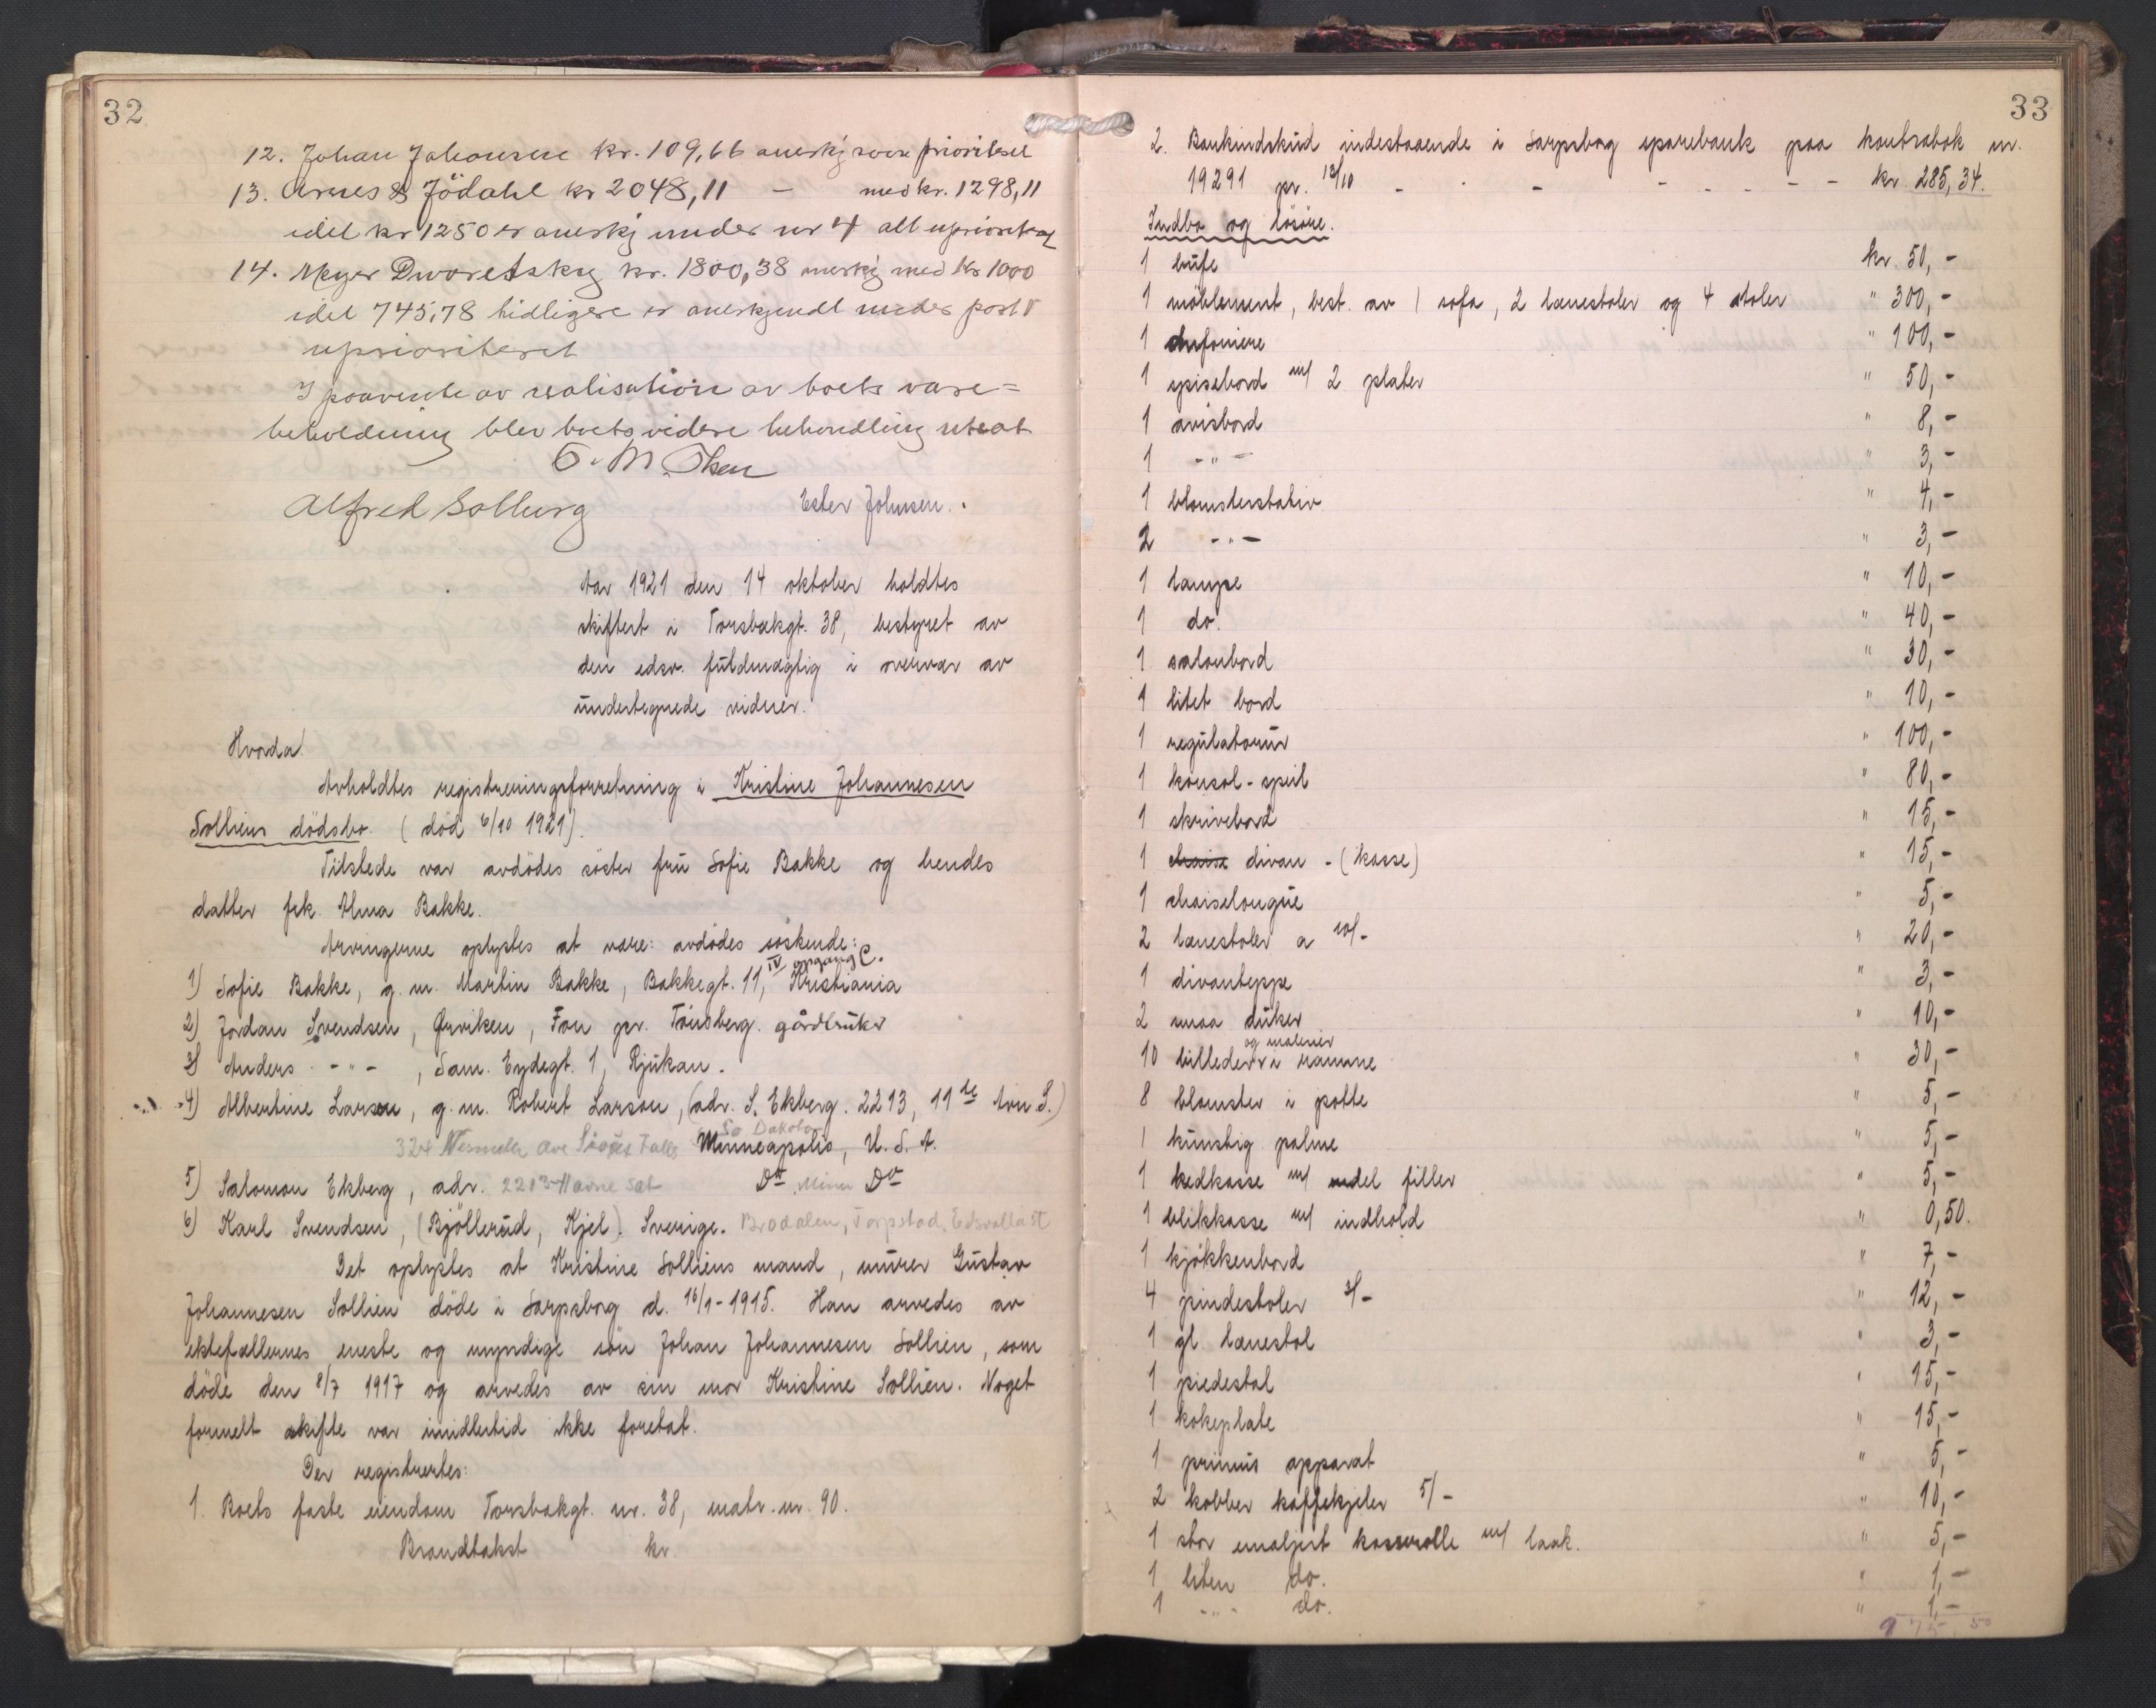 32
12. Johan Johansen kr. 109,66 anerkj som prioritert
13. & Jödahl kr 2048,11 - med kr. 1298,11
idet kr 1250 er anerkj under nr 4 alt uprioritert
14. Meyer Dworetsky kr. 1800,38 anerkj med kr 1000
idet 745,78 tidligere er anerkjendt under post V
uprioritert
I paavente av realisation av boets vare=
beholdning blev boets videre behandling utsat
Alfred Solberg Ester Johnsen.
Aar 1921 den 14 oktober holdtes
skifteret i Torsbækgt. 38, bestyret av
den edsv. fuldmægtig i overvær av
undertegnede vidner.
Hvorda!
Avholdtes registreringsforretning i Kristine Johannesen
Solliens dödsbo. (död 6/10 1921).
Tilstede var avdödes söster fru Sofie Bakke og hendes
datter frk. Alma Bakke.
Arvingerne oplystes at være: avdödes söskende:
1) Sofie Bakke, g. m. Martin Bakke, Bakkegt. 11, IV opgang C. Kristiania
2) Jordan Svendsen, Ørviken, Fon pr. Tönsberg. gårdbruker
3) Anders -"- , Sam. Eydegt. 1, Rjukan.
4) Albertine Larson, g. m. Robert Larson, (adr. S. Ekberg. 2213, 11te Avn S.)
324 Ave Sioux Falls So Dakota Minneapolis, U. S. A.
5) Salomon Ekberg, adr. 2213 Do Minn Do
6) Karl Svendsen, (Bjöllerud, Kjel). Sverige. Brodalen, Torpstad, Edsvalla st
Det oplystes at Kristine Solliens mand, murer Gustav
Johannesen Sollien döde i Sarpsborg d. 16/1-1915. Han arvedes av
ektefællernes eneste og umyndige sön Johan Johannesen Sollien, som
döde den 8/7 1917 og arvedes av sin mor Kristine Sollien. Noget
formelt skifte var imidlertid ikke foretat.
Der registrertes:
1. Boets faste eiendom Torsbakgt. nr. 38, matr. nr. 90.
Brandtakst kr.
33
2. Bankindskud indestaaende i Sarpsborg sparebank paa kontrabok nr.
19291 pr. 13/10 - - - - - - kr. 285,34.
Indbo og lösöre.
1 bufe kr. 50,-
1 möblement, best. av 1 sofa, 2 lænestoler og 4 stoler " 300,-
1 chifoniere " 100,-
1 spisebord m/ 2 plater " 50,-
1 avisbord " 8,-
1 -"- " 3,-
1 blomsterstativ " 4,-
2 -"- " 3,-
1 lampe " 10,-
1 do. " 40,-
1 salonbord " 30,-
1 litet bord " 10,-
1 regulatorur " 100,-
1 konsol-speil " 80,-
1 skrivebord " 15,-
1 chaise divan - (kasse) " 15,-
1 chaiselongue " 5,-
2 lænestoler a 10/- " 20,-
1 divanteppe " 3,-
2 smaa duker " 10,-
10 billeder og malerier i ramme " 30,-
8 blomster i potte " 5,-
1 kunstig palme " 5,-
1 vedkasse m/ endel filler " 5,-
1 blikkasse m/ indhold " 0,50.
1 kjökkenbord " 7,-
4 pindestoler 3/- " 12,-
1 gl. lænestol " 3,-
1 piedestal " 15,-
1 kokeplate " 15,-
1 primus apparat " 5,-
2 kobber kaffekjeler 5/- " 10,-
1 stor emaljert kasserolle m/ laak. " 5,-
1 liten do. " 1,-
1 -"- do. " 1,-